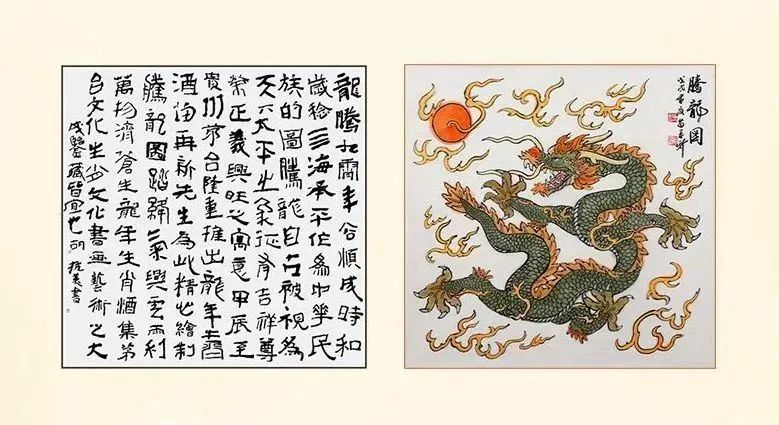 龍騰九霄年谷順成時和
歲稔亖海承平作為中華民
族的圖騰龍自古被視為
天下太平之象征有吉祥尊
榮正義興旺之寓意甲辰至
貴州茅台隆重推出龍年生肖
酒伯再新先生為此精心繪制
騰龍圖踏絳氣興雲雨利
萬物濟蒼生龍年生肖酒集茅
台文化生肖文化書画藝術之大
成鑒藏皆宜也 胡抗美書
騰龍圖